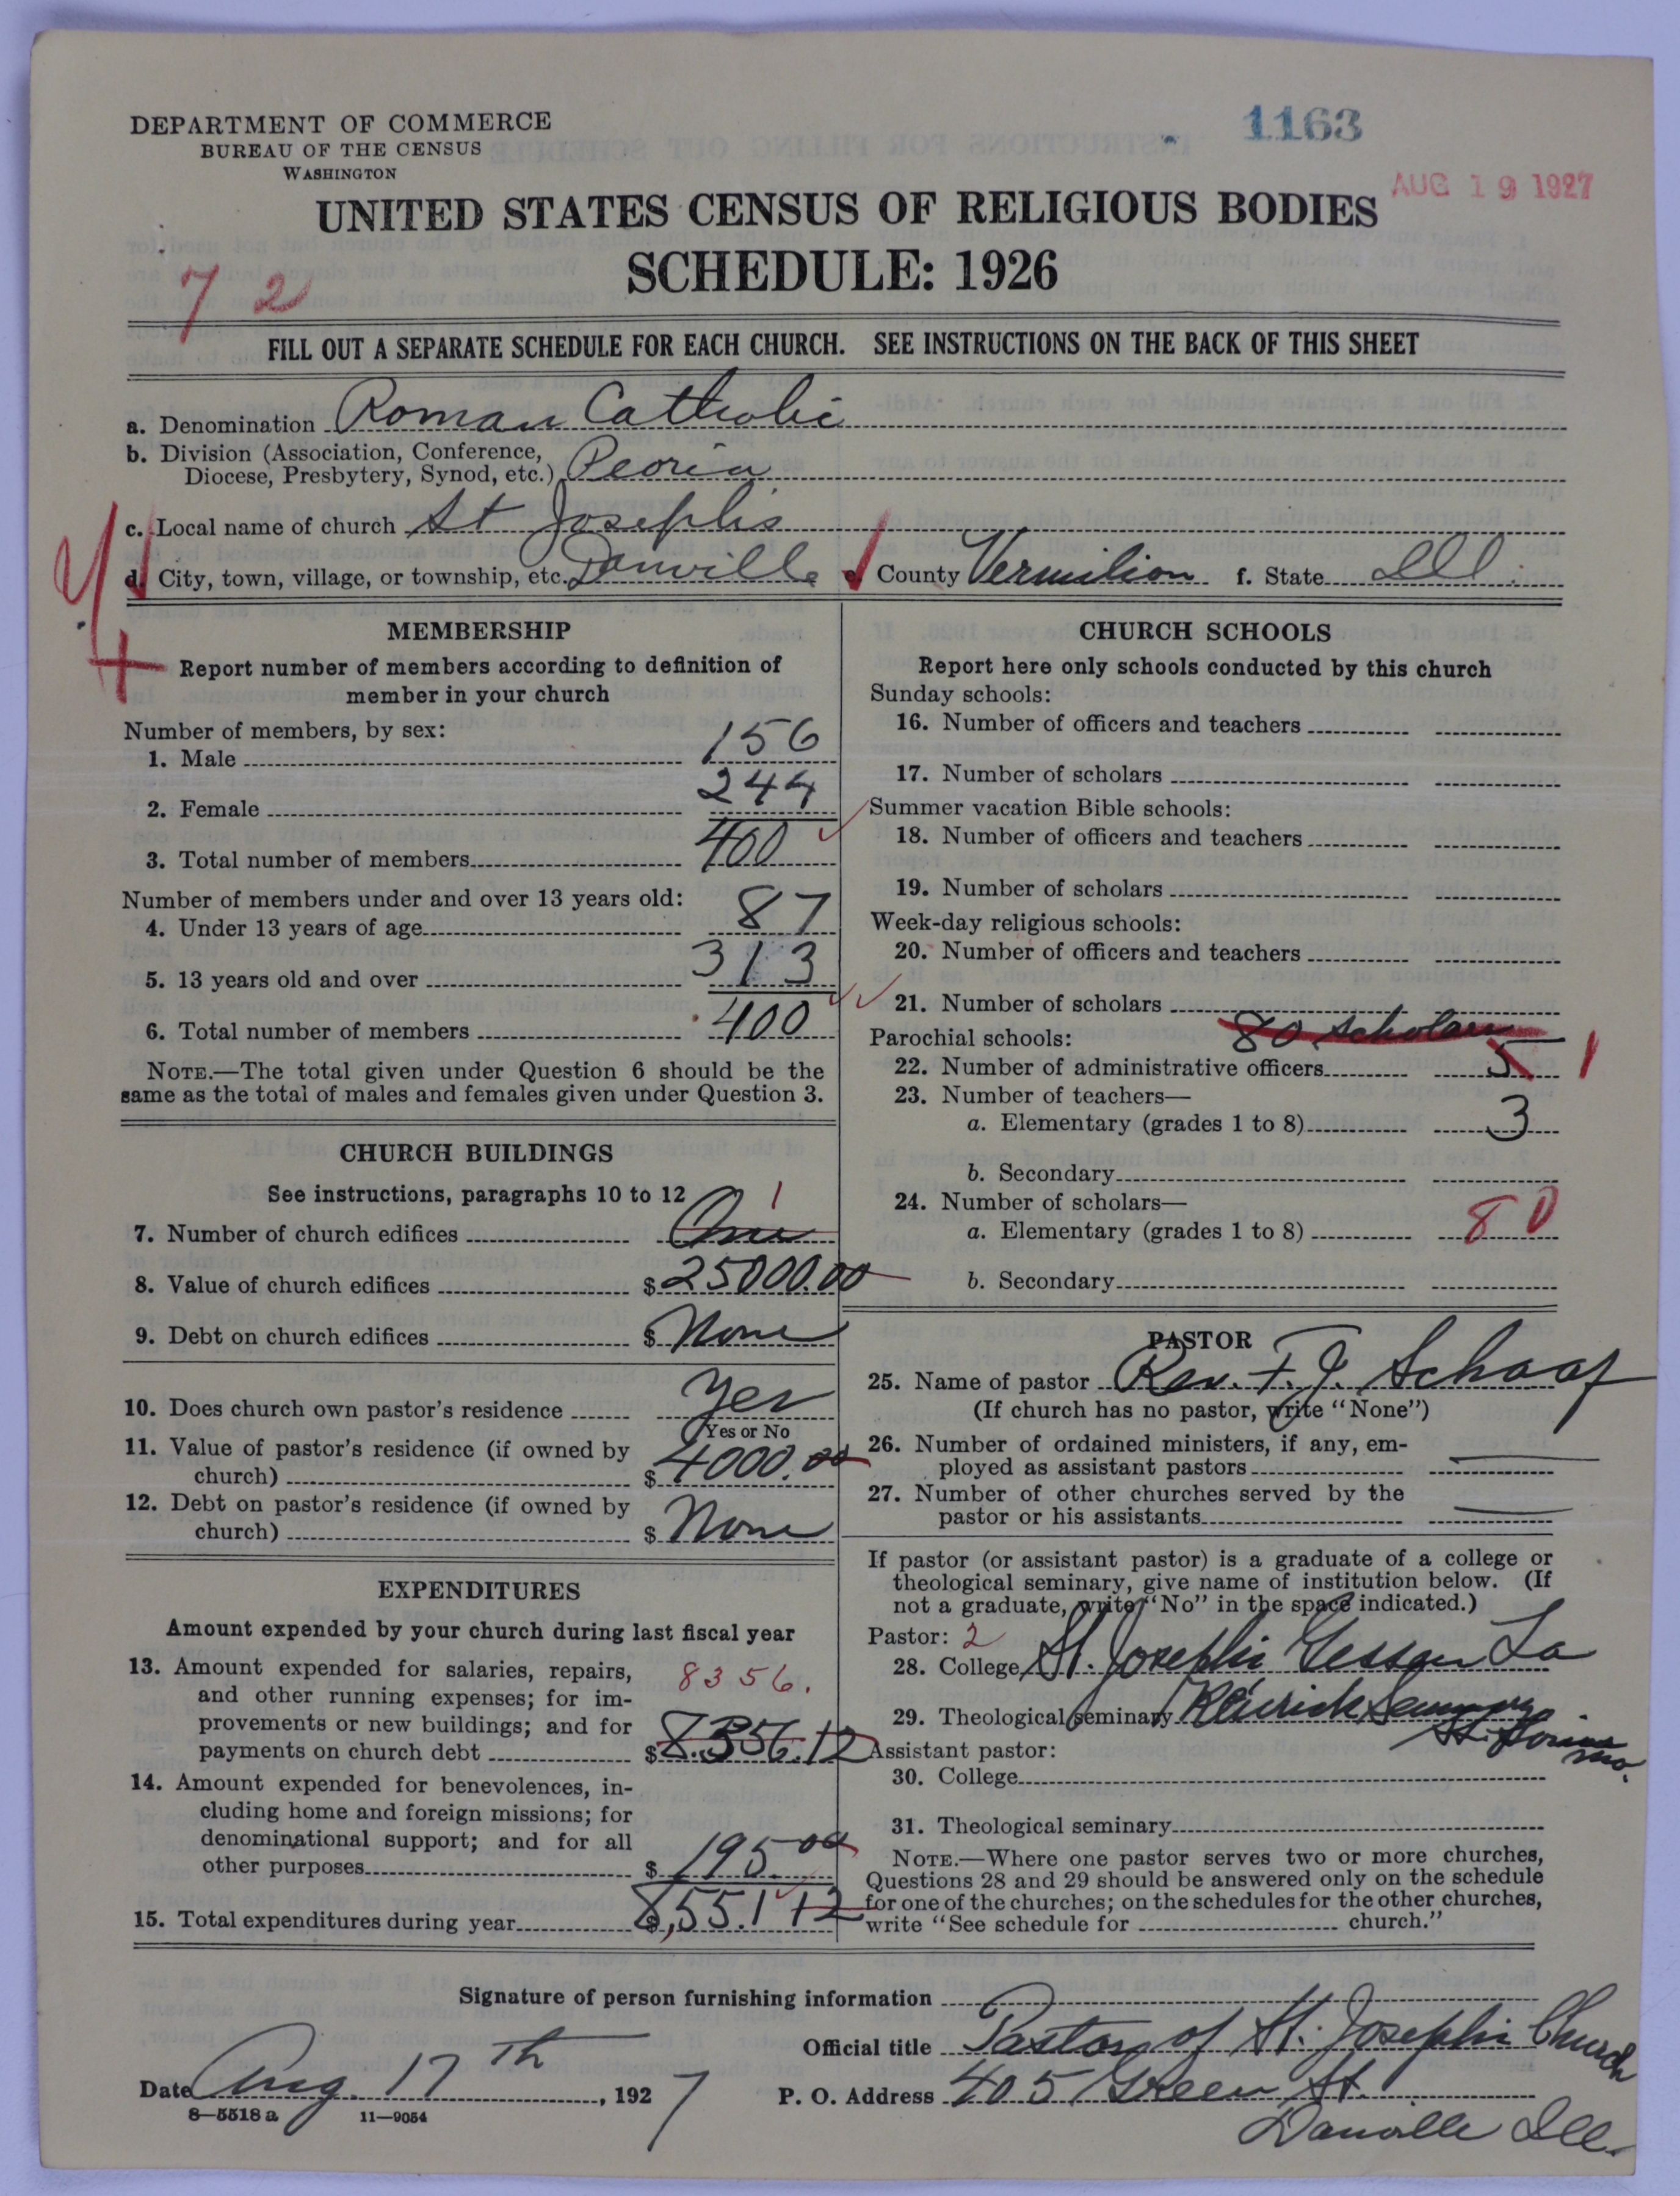 DEPARTMENT OF COMMERCE
BUREAU OF THE CENSUS
WASHINGTON
1163
AUG 19 1927
UNITED STATES CENSUS OF RELIGIOUS BODIES
SCHEDULE: 1926
7 2
FILL OUT A SEPARATE SCHEDULE FOR EACH CHURCH. SEE INSTRUCTIONS ON THE BACK OF THIS SHEET
a. Denomination Roman Catholic
b. Division (Association, Conference,
Diocese, Presbytery, Synod, etc.) Peoria
c. Local name of church St Josephs
d. City, town, village, or township, etc. Danville e. County Vermilion f. State Ill.
MEMBERSHIP
Report number of members according to definition of
member in your church
Number of members, by sex:
1. Male 156
2. Female 244
3. Total number of members 400
Number of members under and over 13 years old:
4. Under 13 years of age 87
5. 13 years old and over 313
6. Total number of members 400
NOTE.—The total given under Question 6 should be the
same as the total of males and females given under Question 3.
CHURCH BUILDINGS
See instructions, paragraphs 10 to 12
1
7. Number of church edifices One
8. Value of church edifices $ 25000.00
9. Debt on church edifices $ None
10. Does church own pastor's residence Yes
Yes or No
11. Value of pastor's residence (if owned by
church) $ 4000.00
12. Debt on pastor's residence (if owned by
church) $ None
EXPENDITURES
Amount expended by your church during last fiscal year
13. Amount expended for salaries, repairs, 8356.
and other running expenses; for im-
provements or new buildings; and for
payments on church debt $ 8.356.12
14. Amount expended for benevolences, in-
cluding home and foreign missions; for
denominational support; and for all
other purposes $ 195.00
15. Total expenditures during year $ 8,551 12
CHURCH SCHOOLS
Report here only schools conducted by this church
Sunday schools:
16. Number of officers and teachers
17. Number of scholars
Summer vacation Bible schools:
18. Number of officers and teachers
19. Number of scholars
Week-day religious schools:
20. Number of officers and teachers
21. Number of scholars
Parochial schools: 80 scholars
22. Number of administrative officers 5 1
23. Number of teachers—
a. Elementary (grades 1 to 8) 3
b. Secondary
24. Number of scholars—
a. Elementary (grades 1 to 8) 80
b. Secondary
PASTOR
25. Name of pastor Rev. F. J. Schaaf
(If church has no pastor, write "None")
26. Number of ordained ministers, if any, em-
ployed as assistant pastors
27. Number of other churches served by the
pastor or his assistants
If pastor (or assistant pastor) is a graduate of a college or
theological seminary, give name of institution below. (If
not a graduate, write "No" in the space indicated.)
Pastor: 2
28. College St. Josephs Gessen La
29. Theological seminary Kenrick Seminary
St. Louis
Mo.
Assistant pastor:
30. College
31. Theological seminary
NOTE.—Where one pastor serves two or more churches,
Questions 28 and 29 should be answered only on the schedule
for one of the churches; on the schedules for the other churches,
write "See schedule for church."
Signature of person furnishing information
Official title Pastor of St. Josephs Church
Date Aug. 17th, 1927 P. O. Address 405 Green St.
Danville Ill.
8—5518 a 11—9054